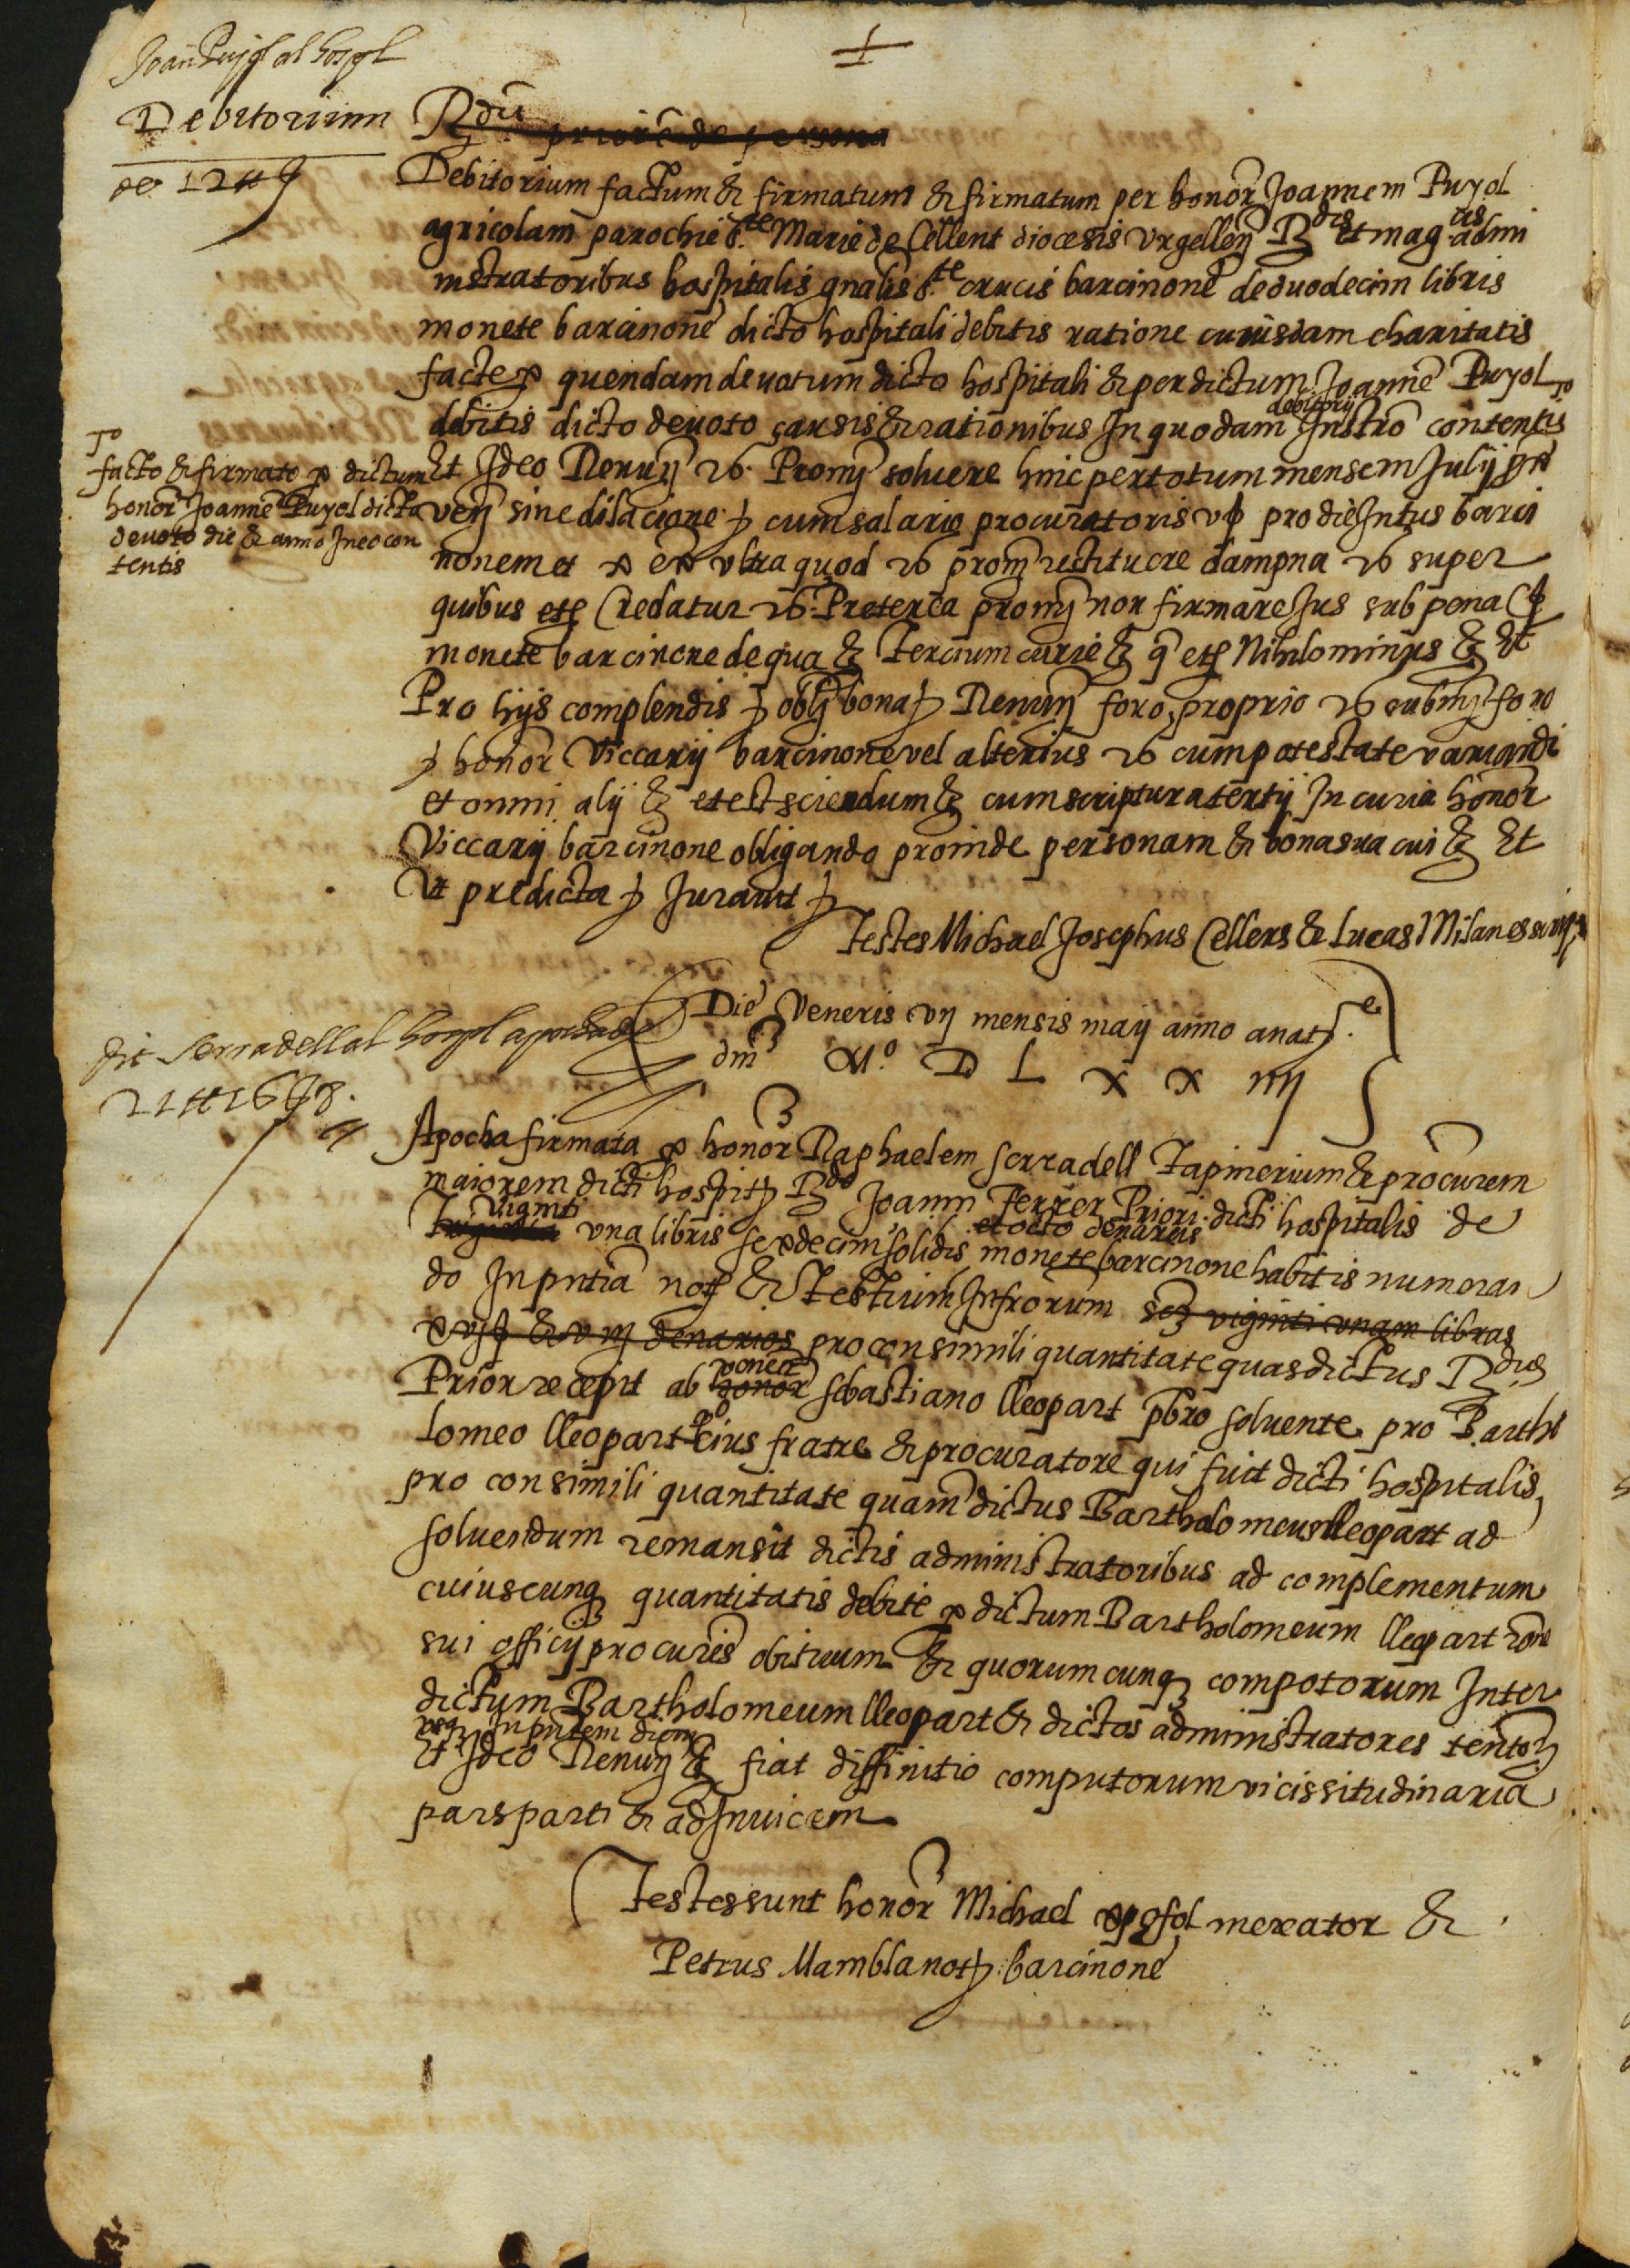 Joan Pujol al hospl
Debitorium
de 12 ₶
Rdu priore de persona
Debitorium factum & firmatum & firmatum per honor Joannem Puyol
agricolam parochie Ste Marie de Cellent diocesis Urgellen Rdis et magcis admi
nistratoribus hospitalis gnalis Ste crucis barcinone de duodecim libris
monete barcinone dicto hospitali debitis ratione cuiusdam charitatis
facte p quendam devotum dicto hospitali & per dictum Joanne Puyol
debitis dicto devoto causis & rationibus In quodam debitorij Instro contentis
To
facto & firmato p dictum
honor Joanne Puyol dicto
devoto die & anno In eo con
tentis
Et Ideo Renuň Promi solvere hinc per totum mensem Julij
veň sine dilacione cum salario procuratoris pro die Intus barci
nonem et ultra quod prom restituere dampna super
quibus Credatur Preterea promi non firmare Jus sub pena
monete barcinone de qua Tercium curie Nihilominus Et
Pro hijs complendis obli bona Renuň foro proprio submi foro
honor Viccarij barcinone vel alterius cum potestate variandi
et omni alij et est sciendum cum scriptura tertij In curia honor
Viccarij barcinone obligando proinde personam & bona sua cui Et
Ut predicta Juravit
Testes Michael Josephus Cellers & Lucas Milanes
Die Veneris vij mensis maij anno a nate
dm M.º D L x x iiij
Serradell al hospl
21 ₶ 16 ẞ 8.
Apocha firmata p honor Raphaelem Serradell Tapinerium & procurem
maiorem dicti hospit Rdo Joanni Ferrer Priori dicti hospitalis de
viginti una libris sexdecim solidis et octo denariis monete barcinone habitis numeran
do In pntia not & Testium Infrorum scz viginti unam libras
xvj ẞ & viij denarios pro consimili quantitate quas dictus Rdus
Prior recepit ab honor Sebastiano lleopart pbro solvente pro Bartho
lomeo lleopart qº eius fratre & procuratore qui fuit dicti hospitalis
pro consimili quantitate quam dictus Bartholomeus lleopart ad
solvendum remansit dictis administratoribus ad complementum
cuiuscunq quantitatis debite p dictum Bartholomeum lleopart rone
sui officij procuris obituum & quorumcunq compotorum Inter
dictum Bartholomeum lleopart & dictos administratores tentor
usq In pntem diem
Et Ideo Renuň fiat diffinitio computorum vicissitudinaria
pars parti & ad Invicem
Testes sunt honor Michael mercator &
Petrus Mamblanot barcinone